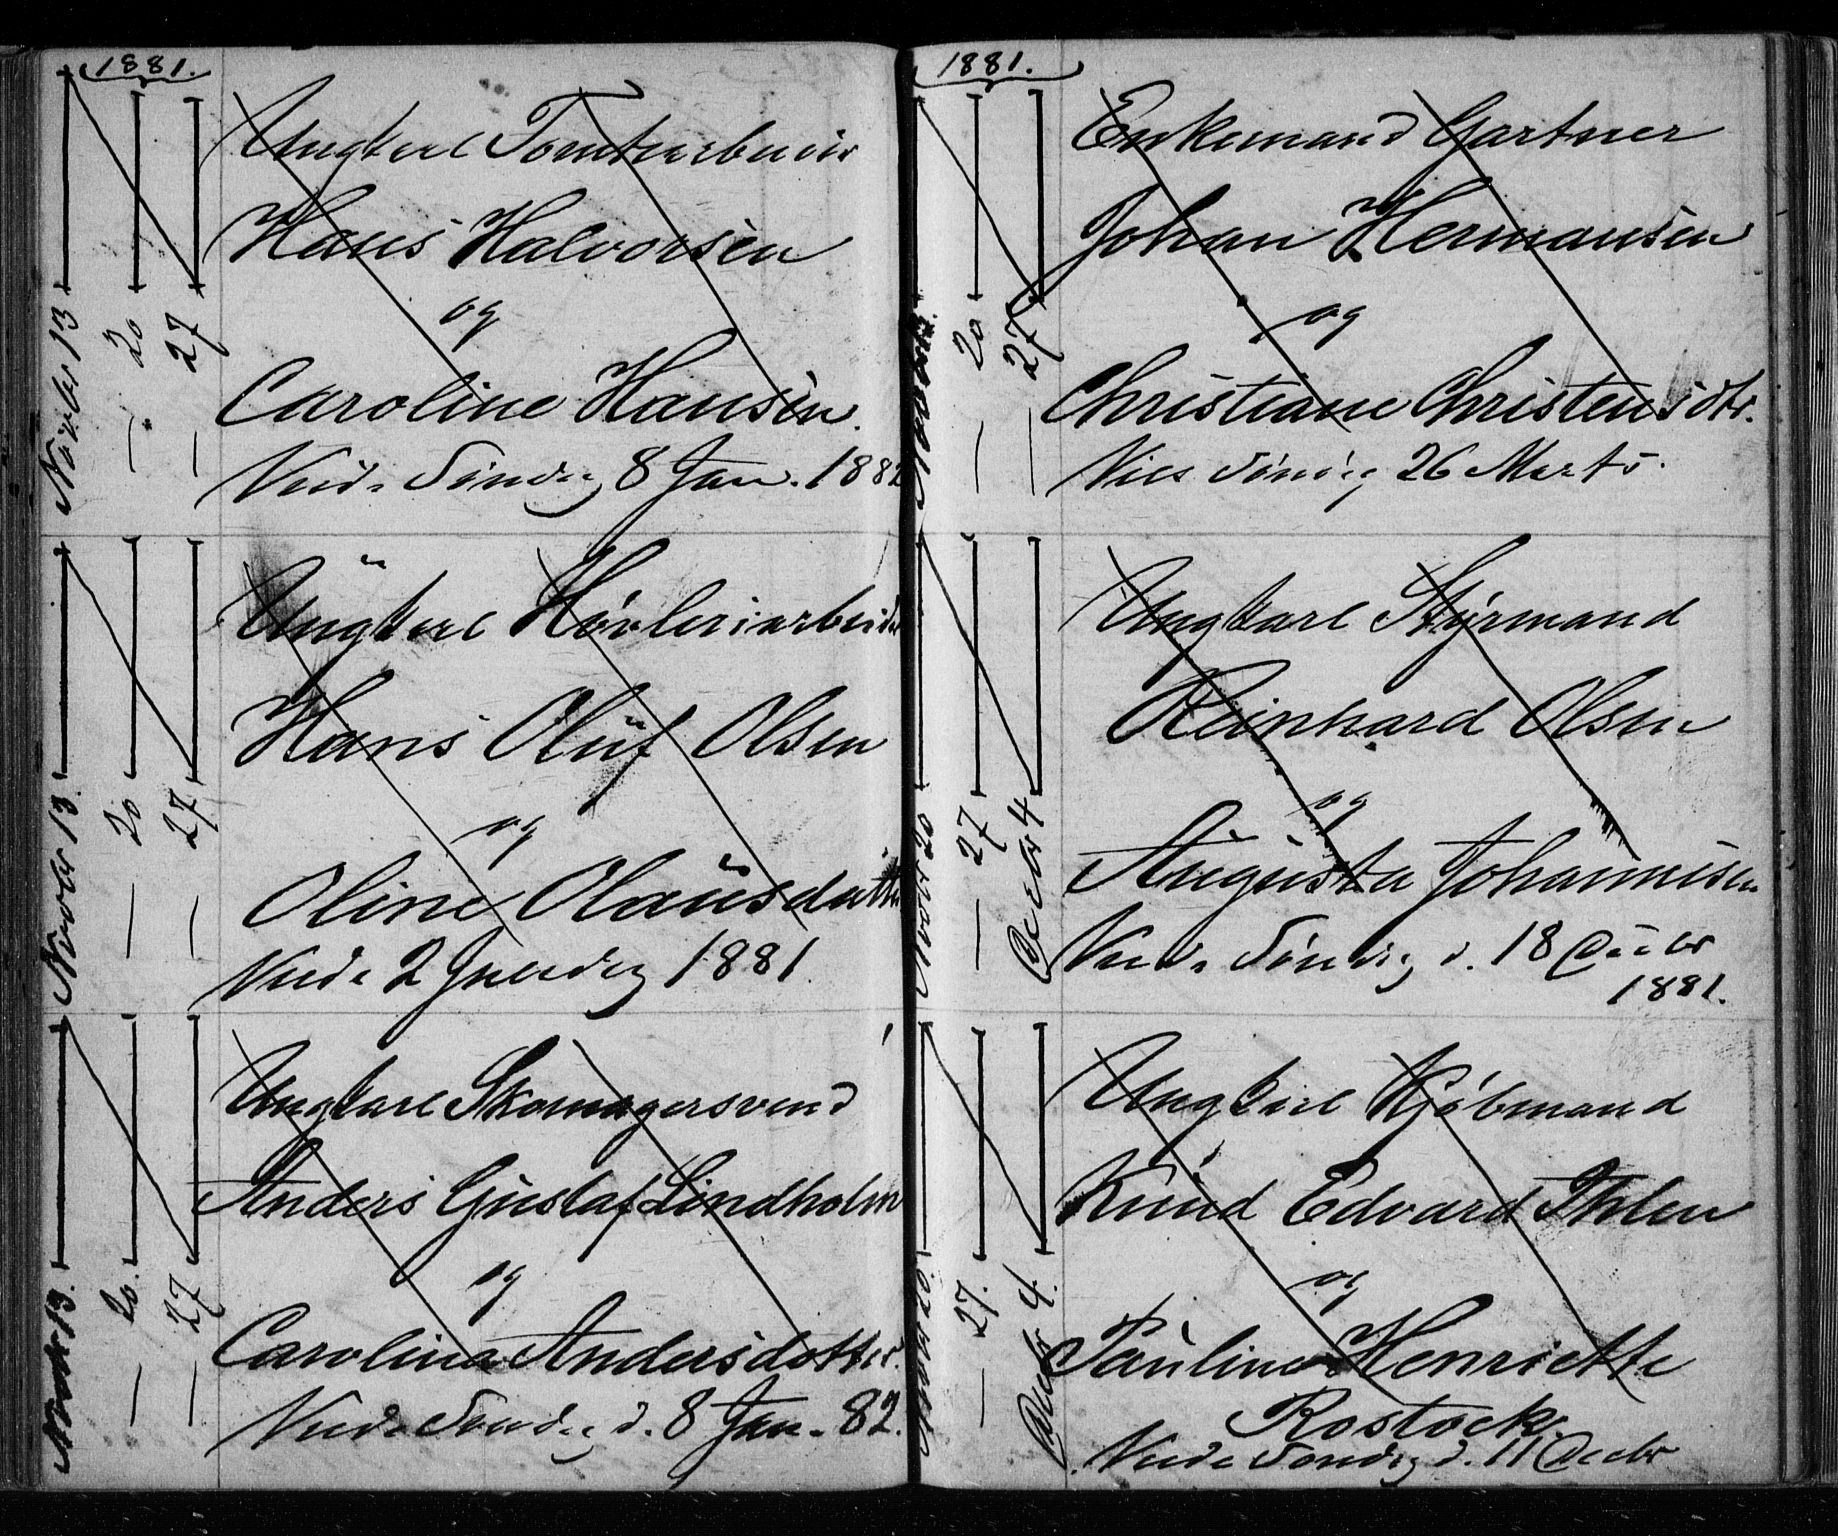 1881.
Novbr 13
— 20
— 27
Ungkarl Tomtearbeider
Hans Halvorsen
og
Caroline Hansen.
Viede Søndag 8 Jan. 1882
Novbr 13.
— 20
— 27
Ungkarl Høvleriarbeider
Hans Oluf Olsen
og
Oline Olausdatter
Viede 2 Juledag 1881.
Novbr 13.
— 20.
— 27
Ungkarl Skomagersvend
Anders Gustaf Lindholm
og
Carolina Andersdotter.
Viede Søndag d. 8 Jan. 82.
1881.
— 20
— 27
Enkemand Gartner
Johan Hermansen
og
Christiane Christensdtr.
Vies Søndag 26 Marts.
Novbr 20
— 27
Decbr 4
Ungkarl Styrmand
Reinhard Olsen
og
Augusta Johannisen
Viede Søndag d. 18 Decbr
1881.
Novbr 20.
— 27.
Decbr 4.
Ungkarl Kjøbmand
Knud Edvard Ihlen
og
Pauline Henriette
Rostock.
Viede Søndag d. 11 Decbr